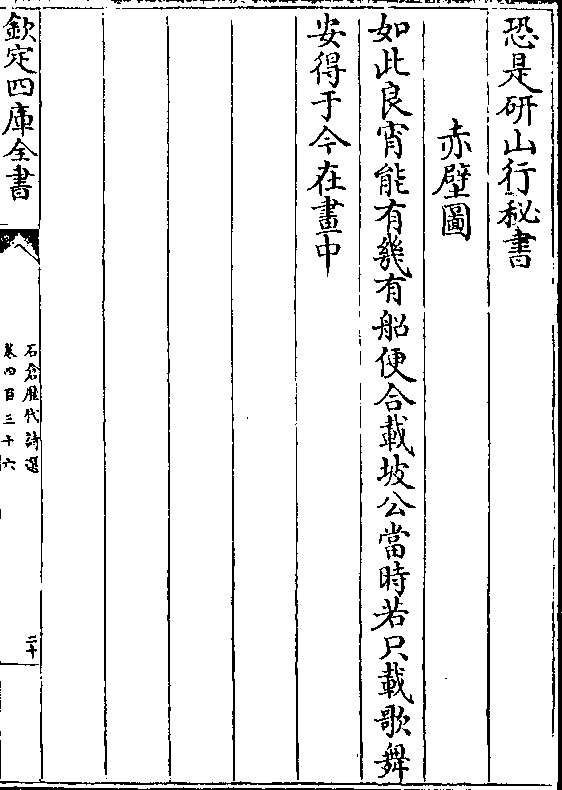 恐是研山行秘書
赤壁圖
如此良宵能有幾有船便合載坡公當時若只載歌舞
安得于今在畫中
欽定四庫全書
石倉歷代詩選
卷四百三十六
二十